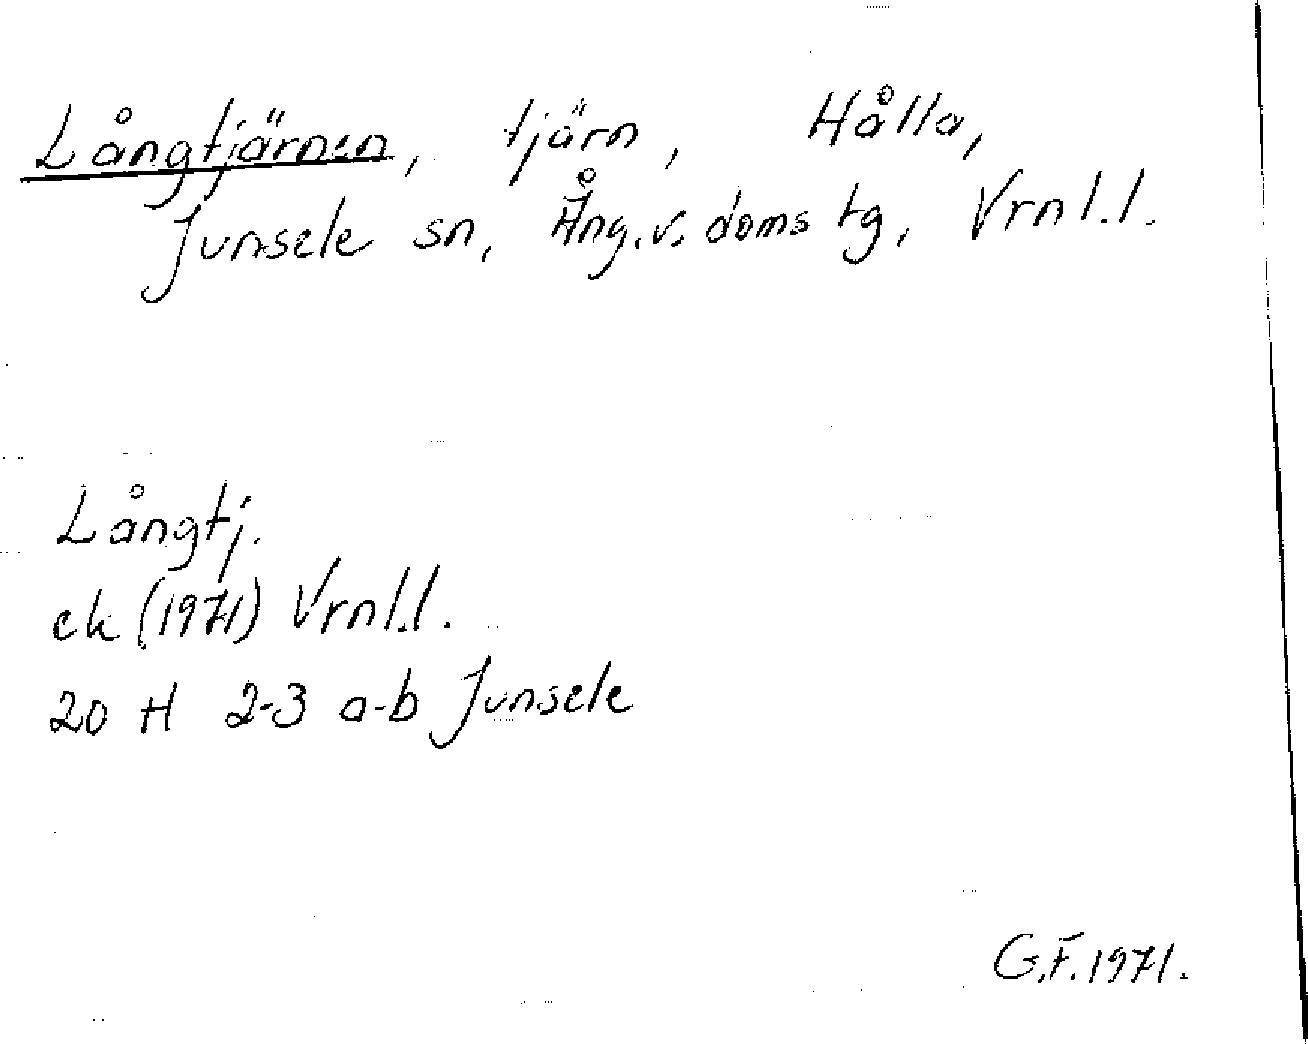 Långtjärnen, tjärn, Hålla,
Junsele sn, Ång.v. doms tg, Vrnl.l.
Långtj.
ek (1971) Vrnl.l.
20 H 2-3 a-b Junsele
G.F. 1971.